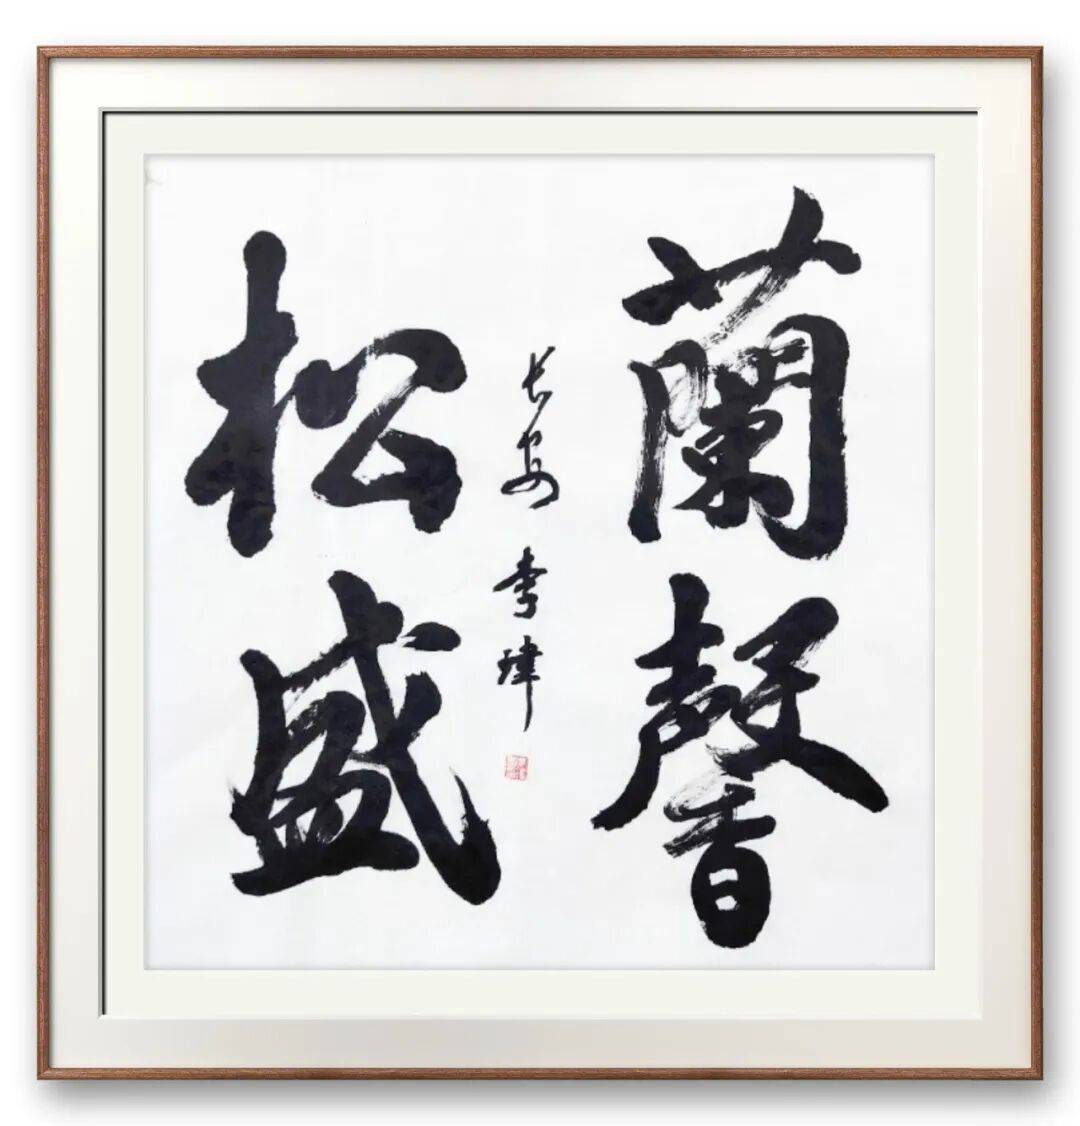 蘭馨
松盛
长安 李瑋